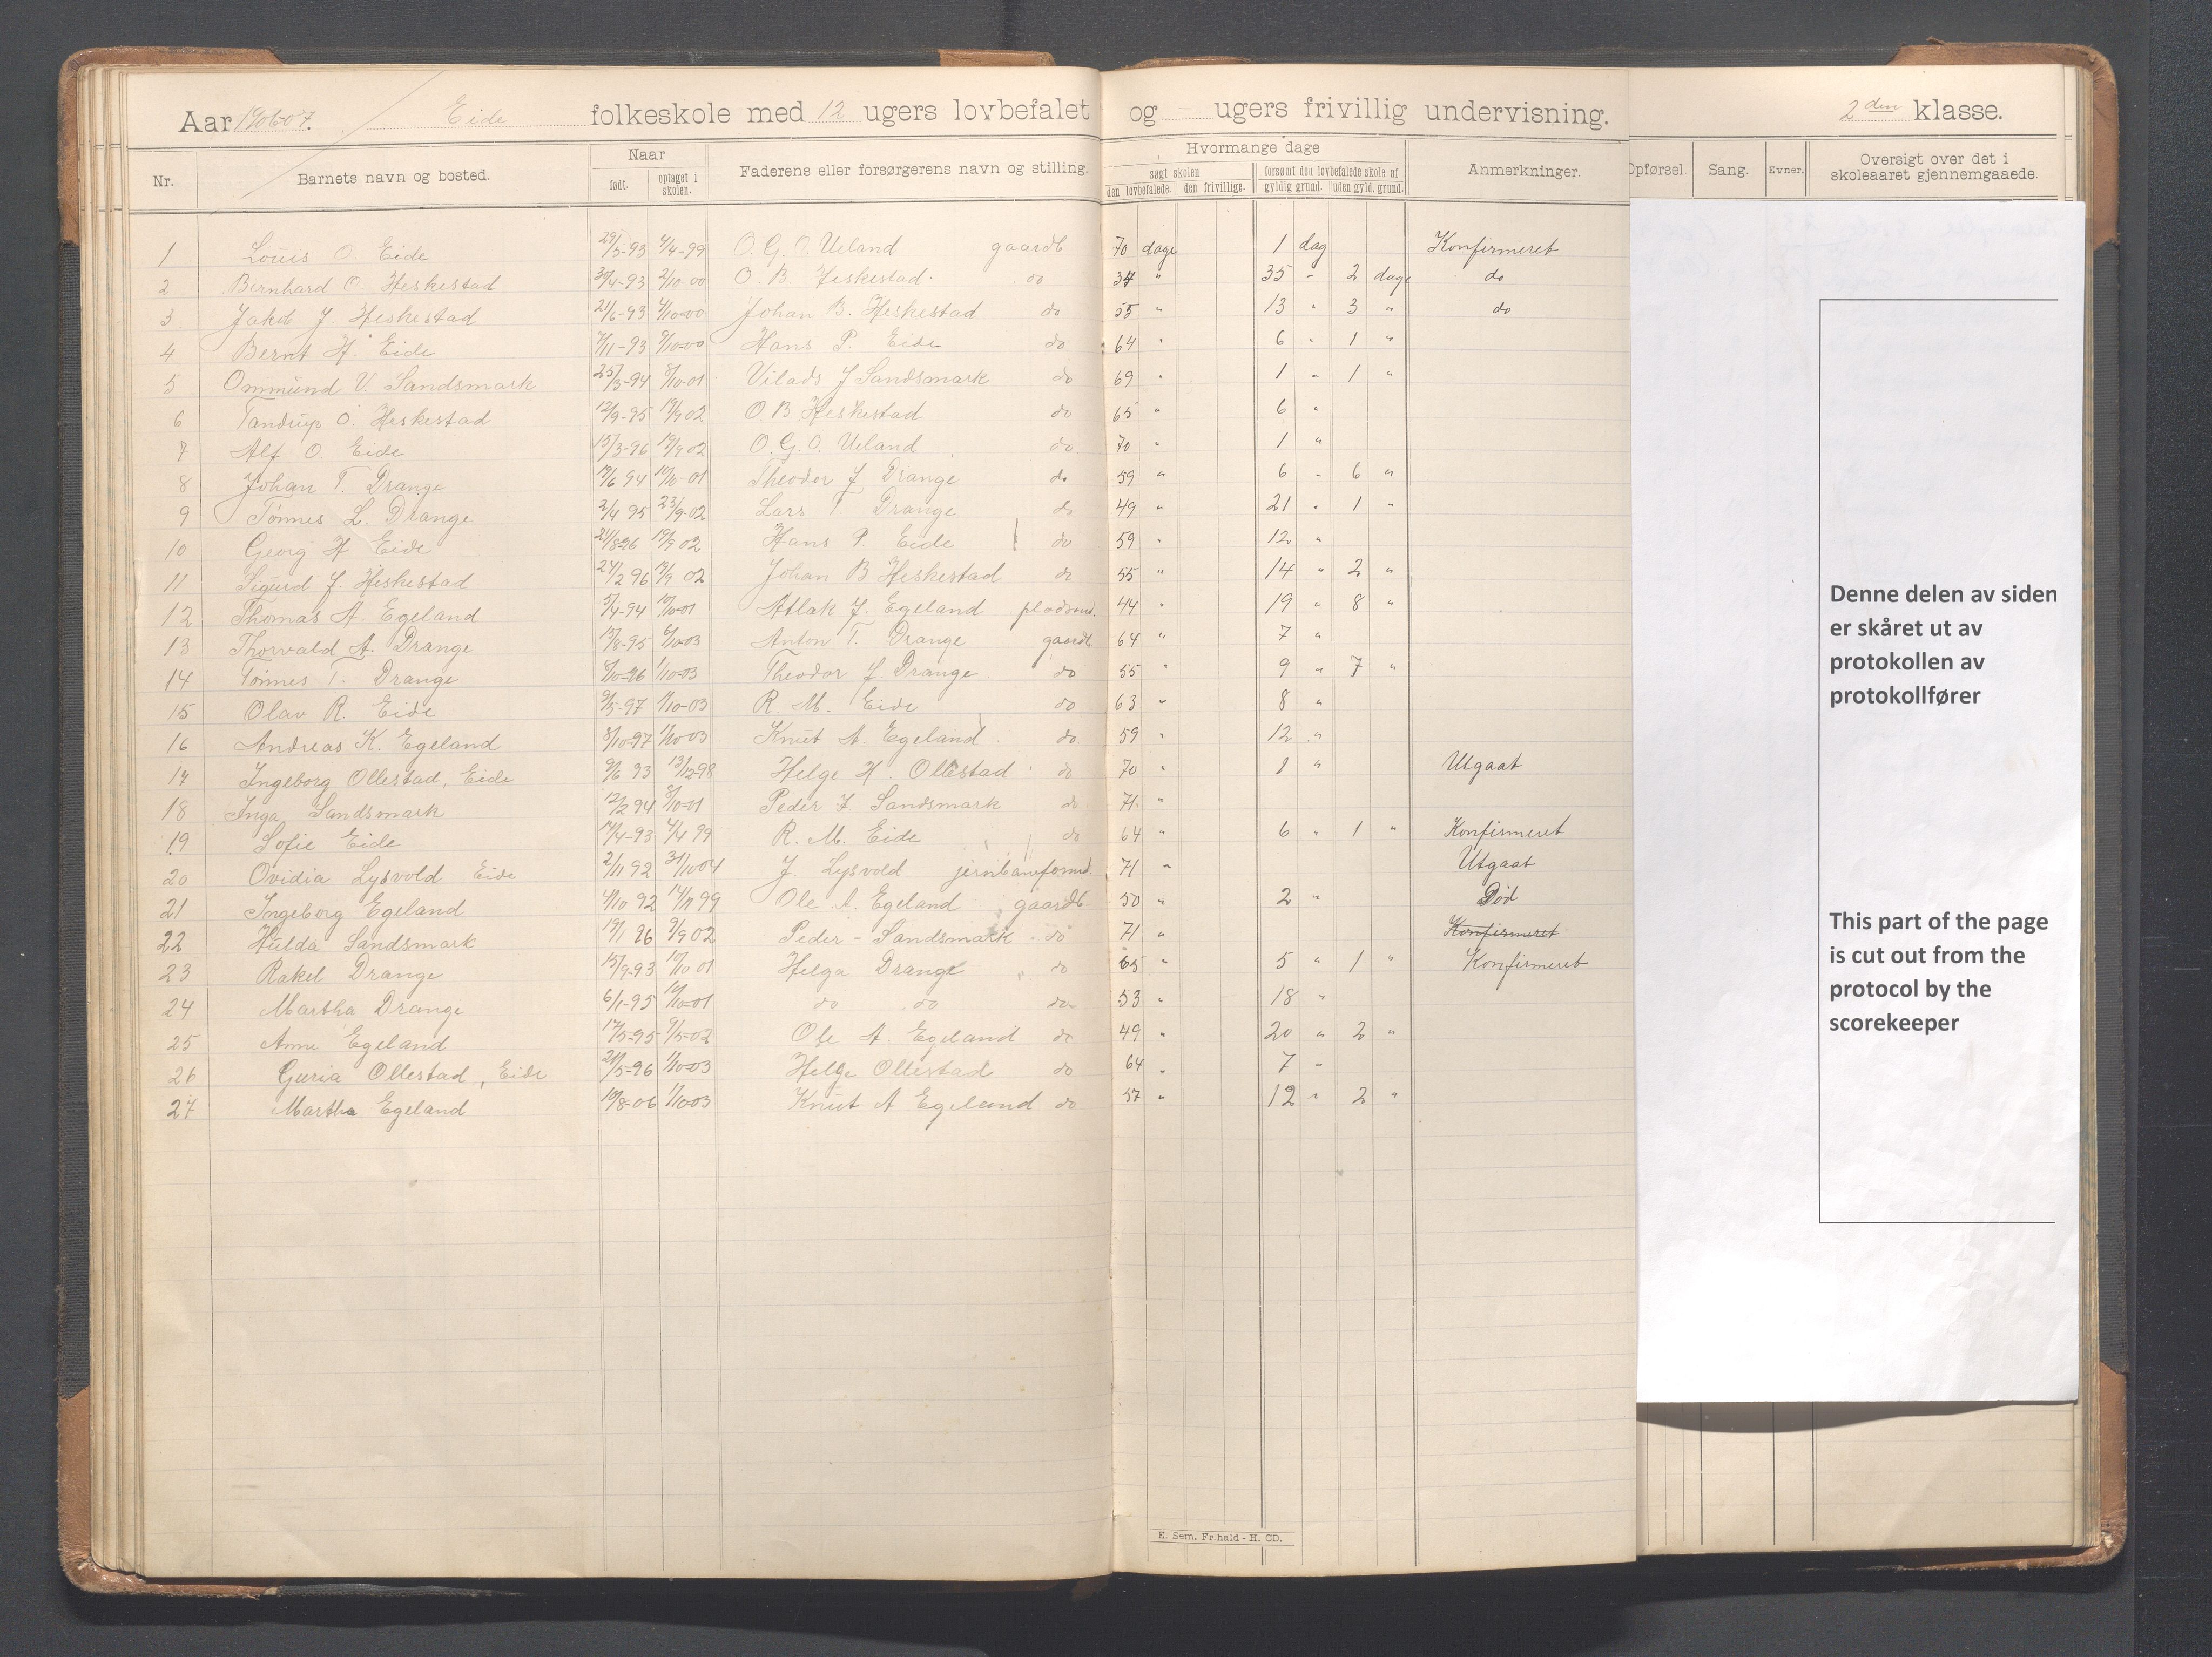 Aar 1906-07. Eide folkeskole med 12 ugers lovbefalet og - ugers frivillig undervisning. 2den klasse.
Nr. Barnets navn og bosted. Naar født. optaget i skolen. Faderens eller forsørgerens navn og stilling. Hvormange dage søgt skolen den lovbefalede. den frivillige. forsømt den lovbefalede skole af gyldig grund. uden gyld. grund. Anmerkninger. Opførsel. Sang. Evner. Oversigt over det i skoleaaret gjennemgaaede.
1 Louis O. Eide 29/3-93 4/4-99 O. G. O. Ueland gaardb 70 dage 1 dag Konfirmeret
2 Bernhard O. Heskestad 30/4-93 2/10-00 O. B. Heskestad do 37 " 35 " 2 dage do
3 Jakob J. Heskestad 21/6-93 4/10-00 Johan B. Heskestad do 55 " 13 " 3 " do
4 Bernt H. Eide 7/11-93 9/10-00 Hans P. Eide do 64 " 6 " 1 "
5 Ommund V. Sandsmark 25/3-94 8/10-01 Vilads J Sandsmark do 69 " 1 " 1 "
6 Tandrup O. Heskestad 12/9-95 19/9 02 O. B. Heskestad do 65 " 6 "
7 Alf O Eide 15/3-96 19/9 02 O. G. O. Ueland do 70 " 1 "
8 Johan T. Drange 19/6 94 10/10-01 Theodor J Drange do 59 " 6 " 6 "
9 Tönnes L. Drange 2/4 95 23/9-02 Lars T. Drange do 49 " 21 " 1 "
10 Georg H Eide 24/8-96 19/9 02 Hans P. Eide do 59 " 12 "
11 Sigurd J. Heskestad 24/2 96 19/9 02 Johan B Heskestad do 55 " 14 " 2 "
12 Thomas A. Egeland 5/4-94 10/10-01 Atlak J. Egeland pladsmd. 44 " 19 " 8 "
13 Thorvald A. Drange 15/8-95 6/10-03 Anton T. Drange gaardb 64 " 7 "
14 Tönnes T. Drange 8/10-96 1/10-03 Theodor J Drange do 55 " 9 " 7 "
15 Olav R. Eide 9/5-97 1/10-03 R. M. Eide do 63 " 8 "
16 Andreas K. Egeland 8/10-97 1/10-03 Knut A. Egeland do 59 " 12 "
17 Ingeborg Ollestad, Eide 9/6 93 13/12-98 Helge H. Ollestad do 70 " 1 " Utgaat
18 Inga Sandsmark 12/2 94 8/10-01 Peder J Sandsmark do 71 "
19 Sofie Eide 14/4-93 4/4 99 R. M. Eide do 64 " 6 " 1 " Konfirmeret
20 Ovidia Lysvold Eide 2/11 92 31/10 04 J. Lysvold jernbaneformd. 71 " Utgaat
21 Ingeborg Egeland 4/10 92 14/11 99 Ole A. Egeland gaardb 50 " 2 " Död
22 Hulda Sandsmark 19/1 96 9/9 02 Peder - Sandsmark do 71 " Konfirmeret
23 Rakel Drange 15/9-93 10/10 01 Helga Drange " do 65 " 5 " 1 " Konfirmeret
24 Martha Drange 6/1-95 10/10-01 do do do 53 " 18 "
25 Anne Egeland 17/5-95 9/5-02 Ole A. Egeland do 49 " 20 " 2 "
26 Guria Ollestad, Eide 21/5-96 1/10-03 Helge Ollestad do 64 " 7 "
27 Martha Egeland 10/8-06 1/10-03 Knut A Egeland do 57 " 12 " 2 "
E. Sem. Fr.hald - H. OD.
Denne delen av siden
er skåret ut av
protokollen av
protokollfører
This part of the page
is cut out from the
protocol by the
scorekeeper